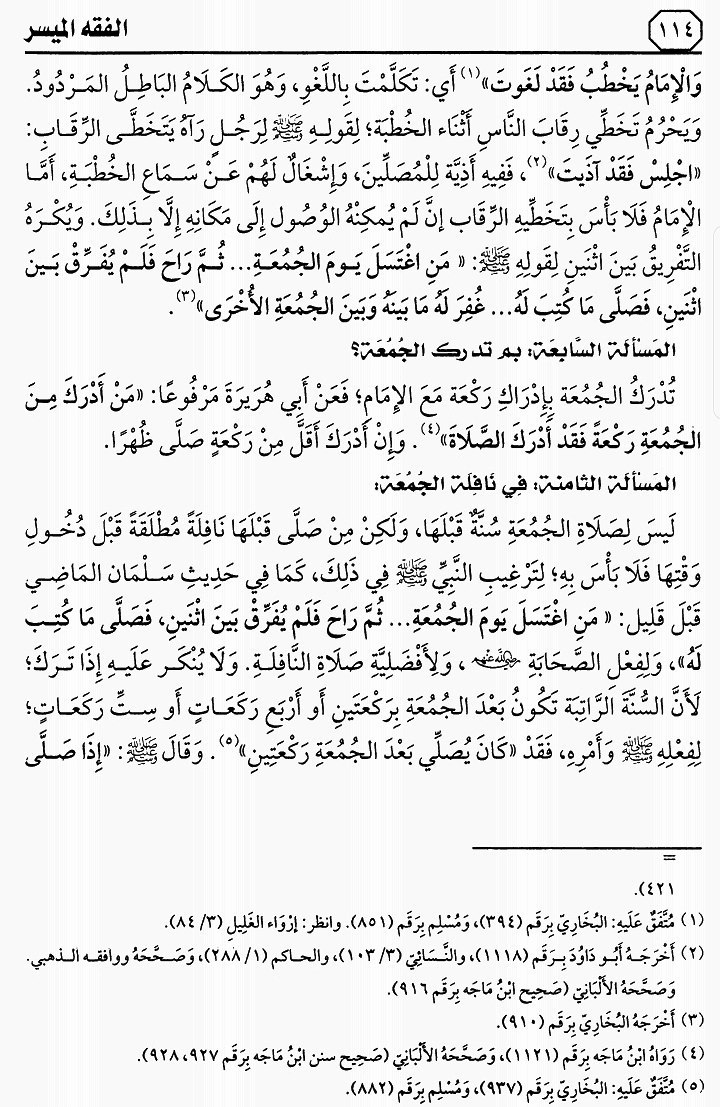 ١١٤
الفقه الميسر
وَالْإِمَامُ يَخْطُبُ فَقَدْ لَغَوتَ»(١) أَي: تَكَلَّمْتَ بِاللَّغْوِ، وَهُوَ الكَلَامُ البَاطِلُ المَرْدُودُ.
وَيَحْرُمُ تَخَطِّي رِقَابَ النَّاسِ أَثْنَاءَ الخُطْبَةِ؛ لِقَولِهِ ﷺ لِرَجُلٍ رَآهُ يَتَخَطَّى الرِّقَابَ:
«اجْلِسْ فَقَدْ آذَيتَ»(٢)، فَفِيهِ أَذِيَّة لِلْمُصَلِّينَ، وَإِشْغَالٌ لَهُمْ عَنْ سَمَاعِ الخُطْبَةِ، أَمَّا
الإِمَامُ فَلَا بَأْسَ بِتَخَطِّيهِ الرِّقاب إنَّ لَمْ يُمكِنْهُ الوُصُول إِلَى مَكَانِهِ إِلَّا بِذَلِكَ. وَيُكْرَهُ
التَّفْرِيقُ بَينَ اثْنَينِ لِقَولِهِ ﷺ: « مَنِ اغْتَسَلَ يَومَ الجُمُعَةِ... ثُمَّ رَاحَ فَلَمْ يُفَرِّقْ بَينَ
اثْنَينِ، فَصَلَّى مَا كُتِبَ لَهُ... غُفِرَ لَهُ مَا بَينَهُ وَبَينَ الجُمُعَةِ الأُخْرَى»(٣).
المَسْأَلَة السَّابعَة: بم تدرك الجُمُعَة؟
تُدْرَكُ الجُمُعَة بِإِدْرَاكِ رَكْعَة مَعَ الإِمَامِ؛ فَعَنْ أَبِي هُرَيرَةَ مَرْفُوعًا: «مَنْ أَدْرَكَ مِنَ
الجُمُعَةِ رَكْعَةً فَقَدْ أَدْرَكَ الصَّلَاةَ»(٤). وَإِنْ أَدْرَكَ أَقَلَّ مِنْ رَكْعَةٍ صَلَّى ظُهْرًا.
المَسْأَلَة الثامنة: فِي نَافِلَة الجُمُعَة:
لَيسَ لِصَلَاةِ الجُمُعَةِ سُنَّةٌ قَبْلَهَا، وَلَكِنْ مِنْ صَلَّى قَبْلَهَا نَافِلَةً مُطْلَقَةً قَبْلَ دُخُولِ
وَقْتِهَا فَلَا بَأْسَ بِهِ؛ لِتَرْغِيبِ النَّبِيِّ ﷺ فِي ذَلِكَ، كَمَا فِي حَدِيثِ سَلْمَان المَاضِي
قَبْلَ قَلِيل: « مَنِ اغْتَسَلَ يَومَ الجُمُعَةِ... ثُمَّ رَاحَ فَلَمْ يُفَرِّقْ بَينَ اثْنَينِ، فَصَلَّى مَا كُتِبَ
لَهُ»، وَلِفِعْلِ الصَّحَابَةِ رضي الله عنهم، وَلِأَفْضَلِيَّةِ صَلَاةِ النَّافِلَةِ. وَلَا يُنْكَر عَلَيهِ إِذَا تَرَكَ؛
لَأَنَّ السُّنَّةَ الرَّاتِبَة تَكُونُ بَعْدَ الجُمُعَةِ بِرَكْعَتَينِ أَو أَرْبَعِ رَكَعَاتٍ أَو سِتِّ رَكَعَاتٍ؛
لِفِعْلِهِ ﷺ وَأَمْرِهِ، فَقَدْ «كَانَ يُصَلِّي بَعْدَ الجُمُعَةِ رَكْعَتِينِ»(٥). وَقَالَ ﷺ: «إِذَا صَلَّى
=
٤٢١).
(١) مُتَّفَقٌ عَلَيهِ: البُخَارِيّ بِرَقم (٣٩٤)، وَمُسْلِم بِرَقَم (٨٥١). وانظر: إرْوَاء الغَلِيلِ (٣/ ٨٤).
(٢) أَخْرَجَهُ أَبُو دَاوُدَ بِرَقَم (١١١٨)، والنَّسَائِيّ (٣/ ١٠٣)، والحاكم (١/ ٢٨٨)، وَصَحَّحَهُ ووافقه الذهبي.
وَصَحَّحَهُ الأَلْبَانِيّ (صَحِيح ابْنُ مَاجَه بِرَقَم ٩١٦).
(٣) أَخْرَجَهُ البُخَارِيّ بِرَقَم (٩١٠).
(٤) رَوَاهُ ابْنُ مَاجَه بِرَقَم (١١٢١)، وَصَحَّحَهُ الأَلْبَانِيّ (صَحِيح سنن ابْنُ مَاجَه بِرَقَم ٩٢٧، ٩٢٨).
(٥) مُتَّفَقٌ عَلَيهِ: البُخَارِيّ بِرَقَم (٩٣٧)، وَمُسْلِم بِرَقَم (٨٨٢).